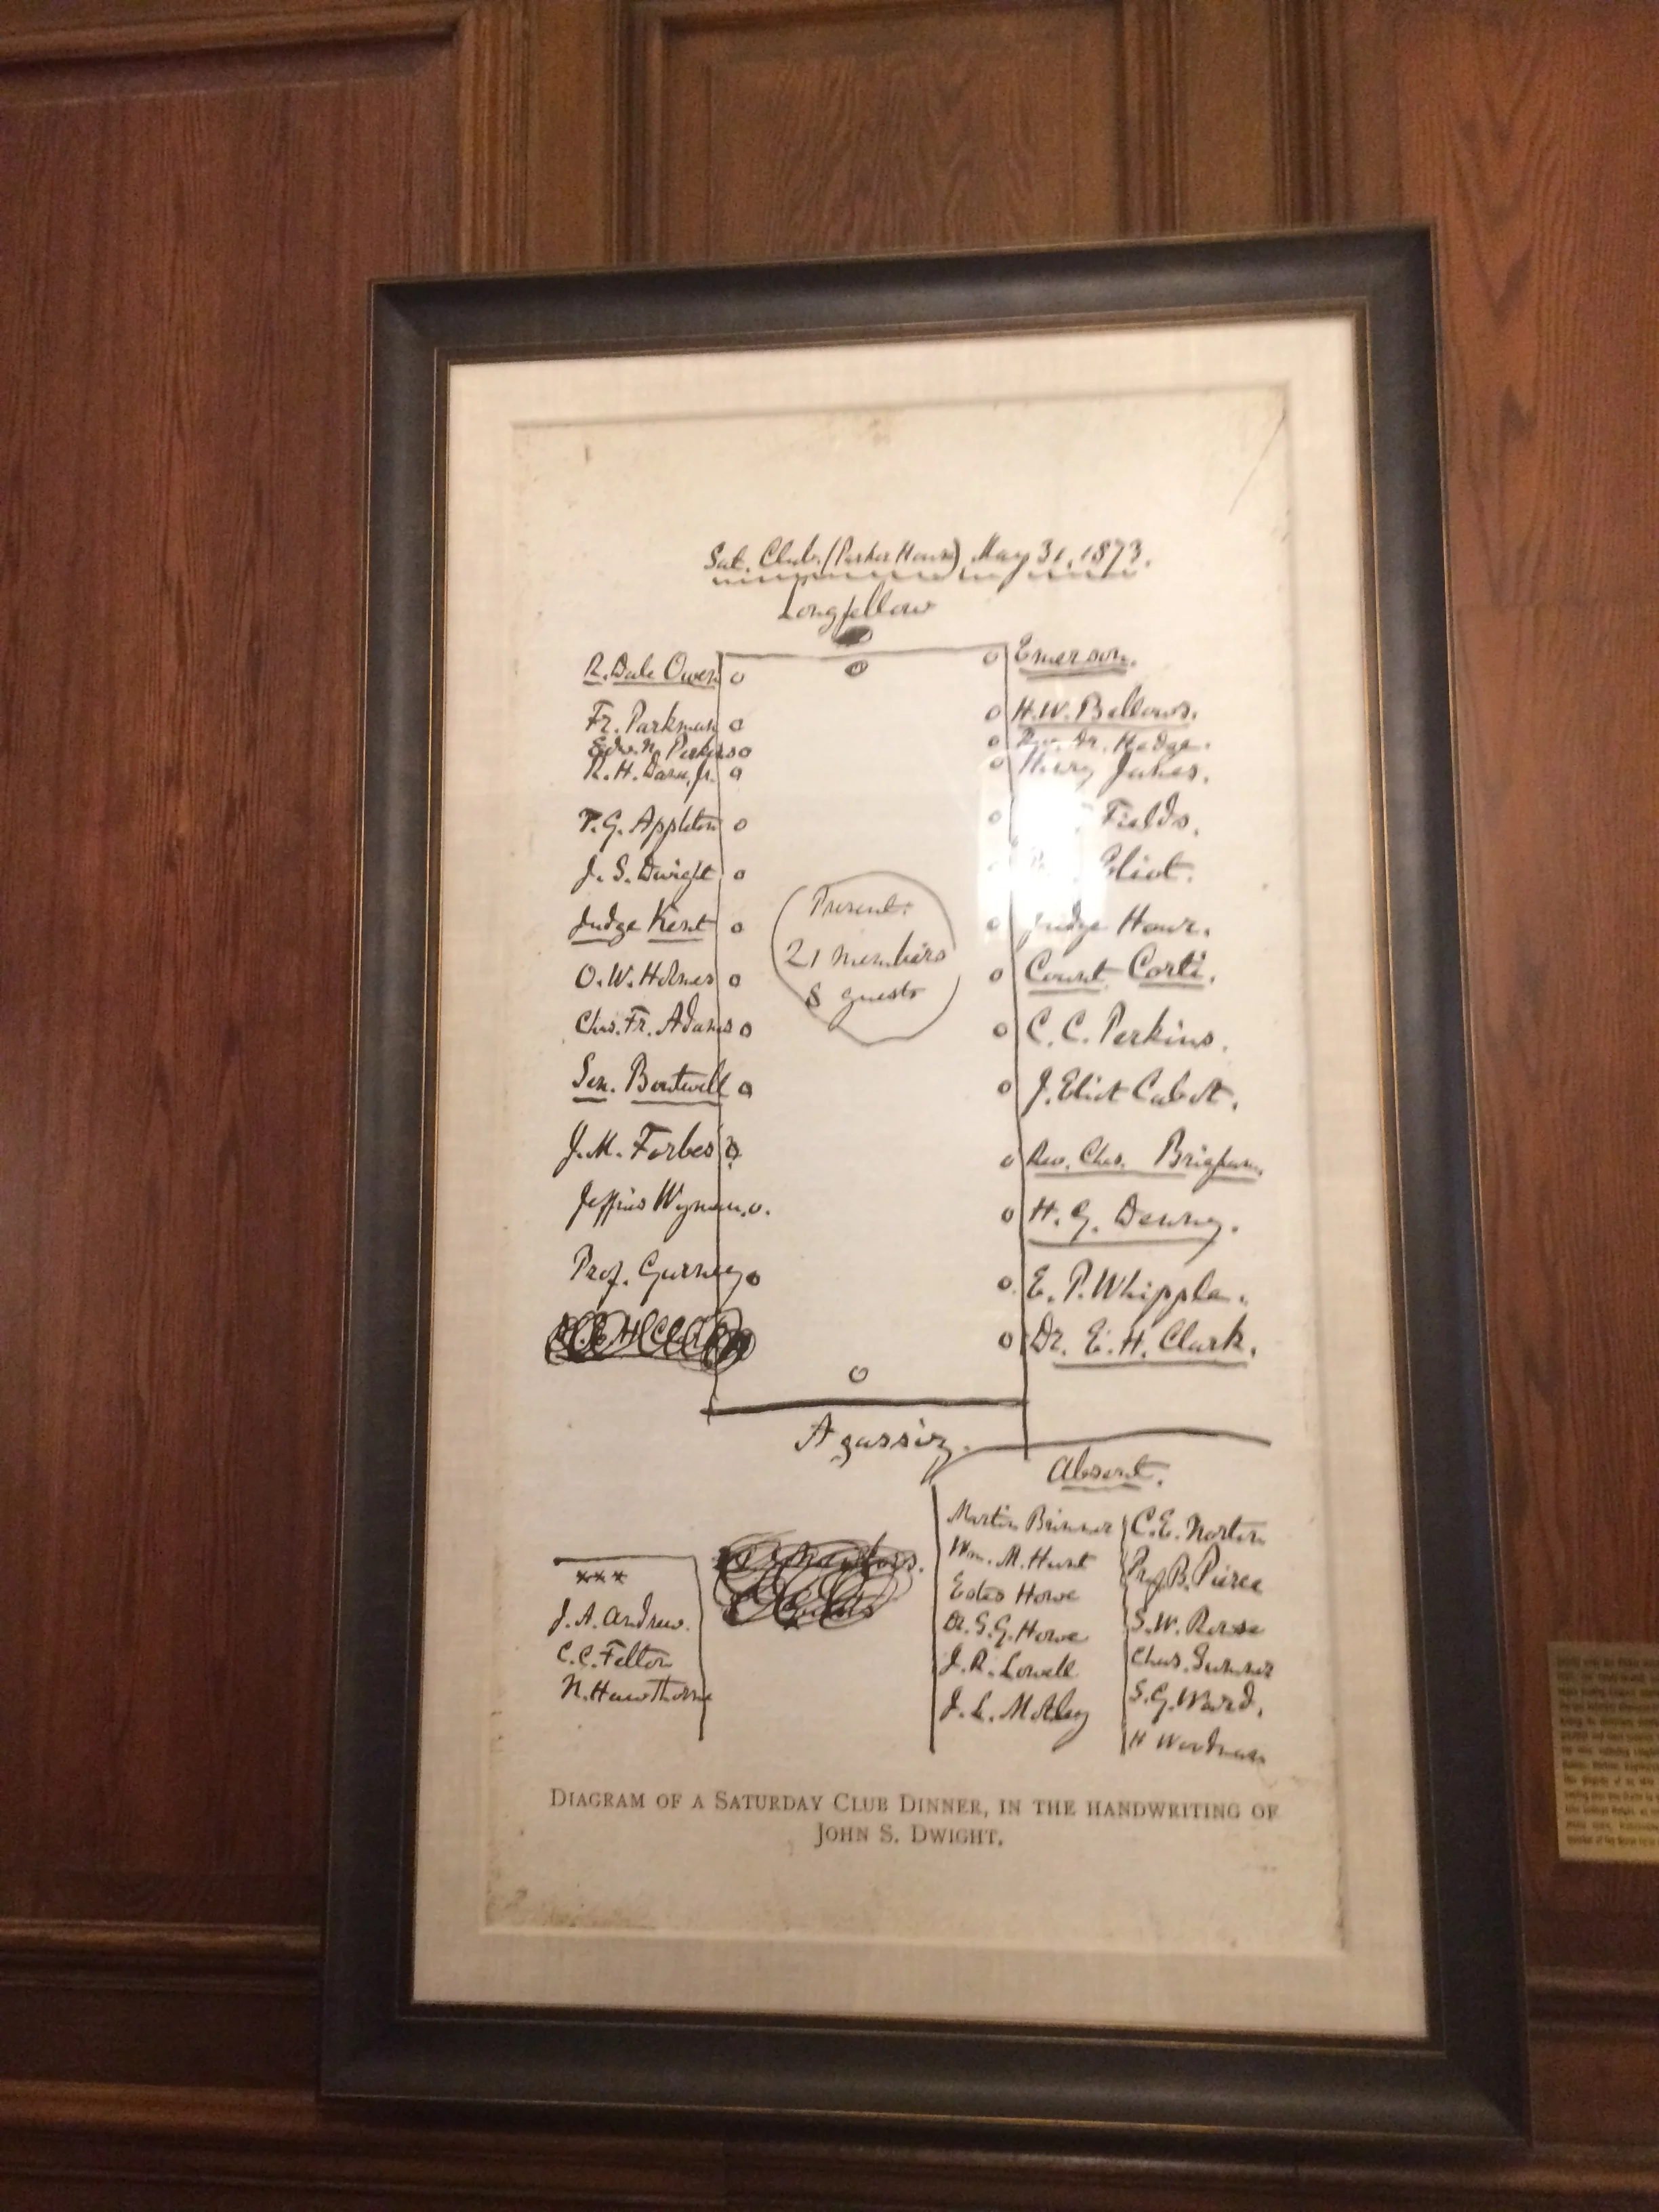 Sat. Club. (Parker House), May 31, 1873.
Longfellow
R. Dale Owen
Fr. Parkman
R. H. Dana, Jr.
T. G. Appleton
J. S. Dwight
Judge Kent
O. W. Holmes
Chas. Fr. Adams
Sen. Boutwell
J. M. Forbes
Jeffries Wyman.
Prof. Gurney
Present:
21 members
8 guests
Emerson.
H. W. Bellows.
Rev. Dr. Hedge.
Henry James.
Fields.
Eliot.
Judge Hoar.
Count Corti.
C. C. Perkins.
J. Eliot Cabot.
Rev. Chas. Brigham.
H. G. Denny.
E. P. Whipple.
Dr. E. H. Clark.
Agassiz.
***
J. A. Andrew.
C. C. Felton
N. Hawthorne
Absent.
Martin Brimmer
Wm. M. Hunt
Estes Howe
Dr. S. G. Howe
J. R. Lowell
J. L. Motley
C. E. Norton
Prof. B. Peirce
S. W. Rowse
Chas. Sumner
S. G. Ward.
H Woodman
DIAGRAM OF A SATURDAY CLUB DINNER, IN THE HANDWRITING OF
JOHN S. DWIGHT.